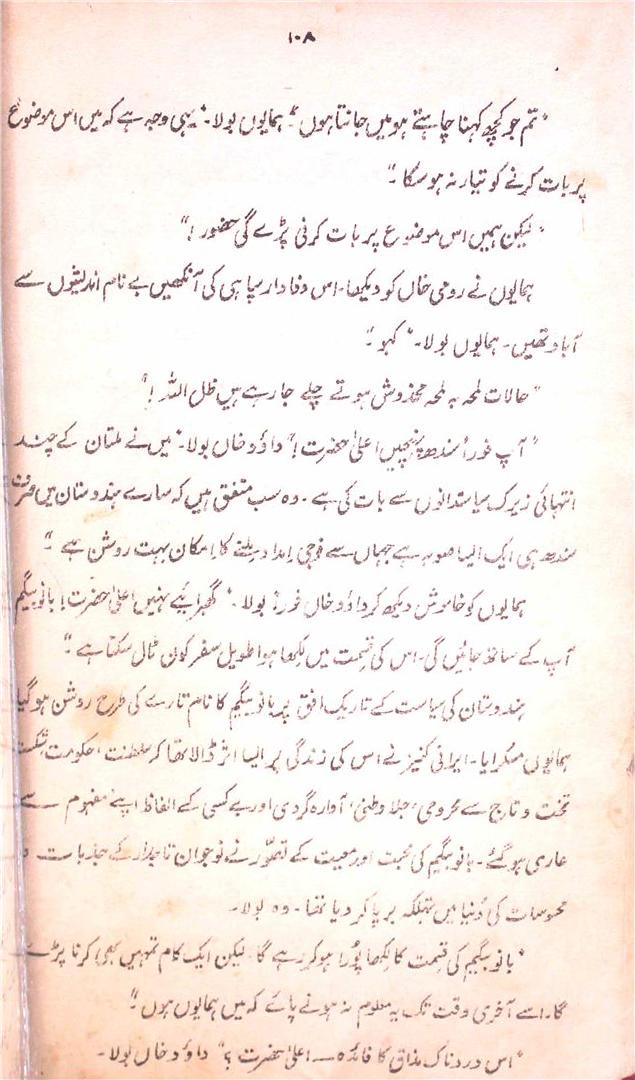 ۱۰۸
"تم جو کچھ کہنا چاہتے ہو میں جانتا ہوں"۔ ہمایوں بولا۔ "یہی وجہ ہے کہ میں اس موضوع
پر بات کرنے کو تیار نہ ہو سکا۔"
"لیکن ہمیں اس موضوع پر بات کرنی پڑے گی حضور!"
ہمایوں نے رومی خاں کو دیکھا۔ اس وفادار سپاہی کی آنکھیں بے نام اندیشوں سے
آباد تھیں۔ ہمایوں بولا۔ "کہو۔"
"حالات لمحہ بہ لمحہ مخدوش ہوتے چلے جا رہے ہیں ظل اللہ!"
"آپ فوراً سندھ پہنچیں اعلیٰ حضرت!" داؤد خاں بولا۔ "میں نے ملتان کے چند
انتہائی زیرک سیاستدانوں سے بات کی ہے۔ وہ سب متفق ہیں کہ سارے ہندوستان میں صرف
سندھ ہی ایک ایسا صوبہ ہے جہاں سے فوجی امداد ملنے کا امکان بہت روشن ہے۔"
ہمایوں کو خاموش دیکھ کر داؤد خاں فوراً بولا۔ "گھبرائیے نہیں اعلیٰ حضرت! بانو بیگم
آپ کے ساتھ جائیں گی۔ اس کی قسمت میں لکھا ہوا طویل سفر کون ٹال سکتا ہے۔"
ہندوستان کی سیاست کے تاریک افق پر بانو بیگم کا نام تارے کی طرح روشن ہو گیا
ہمایوں مسکرایا۔ ایرانی کنیز نے اس کی زندگی پر ایسا اثر ڈالا تھا کہ سلطنت، حکومت، شکست
تخت و تاج سے محرومی، جلا وطنی، آوارہ گردی اور بے کسی کے الفاظ اپنے مفہوم سے
عاری ہو گئے۔ بانو بیگم کی محبت اور معیت کے تصور نے نوجوان تاجدار کے جذبات و
محسوسات کی دُنیا میں تہلکہ برپا کر دیا تھا۔ وہ بولا۔
"بانو بیگم کی قسمت کا لکھا پُورا ہو کر رہے گا۔ لیکن ایک کام تمہیں بھی کرنا پڑے
گا۔ اسے آخری وقت تک یہ معلوم نہ ہونے پائے کہ میں ہمایوں ہوں۔"
"اس دردناک مذاق کا فائدہ — اعلیٰ حضرت؟" داؤد خاں بولا۔